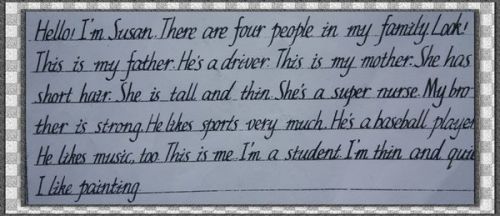 Hello! I'm Susan. There are four people in my family. Look!
This is my father. He's a driver. This is my mother. She has
short hair. She is tall and thin. She's a super nurse. My bro-
ther is strong. He likes sports very much. He's a baseball player.
He likes music, too. This is me. I'm a student. I'm thin and
I like painting